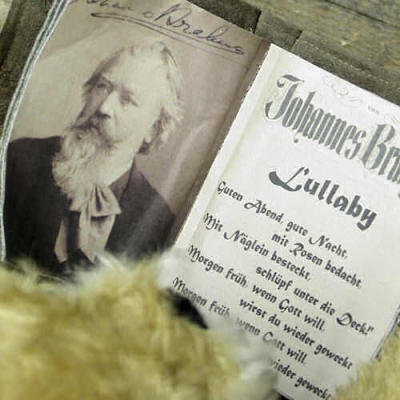 Johannes Brahms
VON
Johannes
Lullaby
Guten Abend, gute Nacht,
mit Rosen bedacht,
Mit Näglein besteckt,
schlüpf unter die Deck!"
Morgen früh, wenn Gott will,
wirst du wieder geweckt
Morgen früh, wenn Gott will,
wieder geweckt